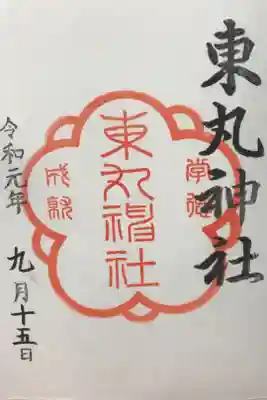 東丸神社
学徳
東丸神社
成就
令和元年
九月十五日